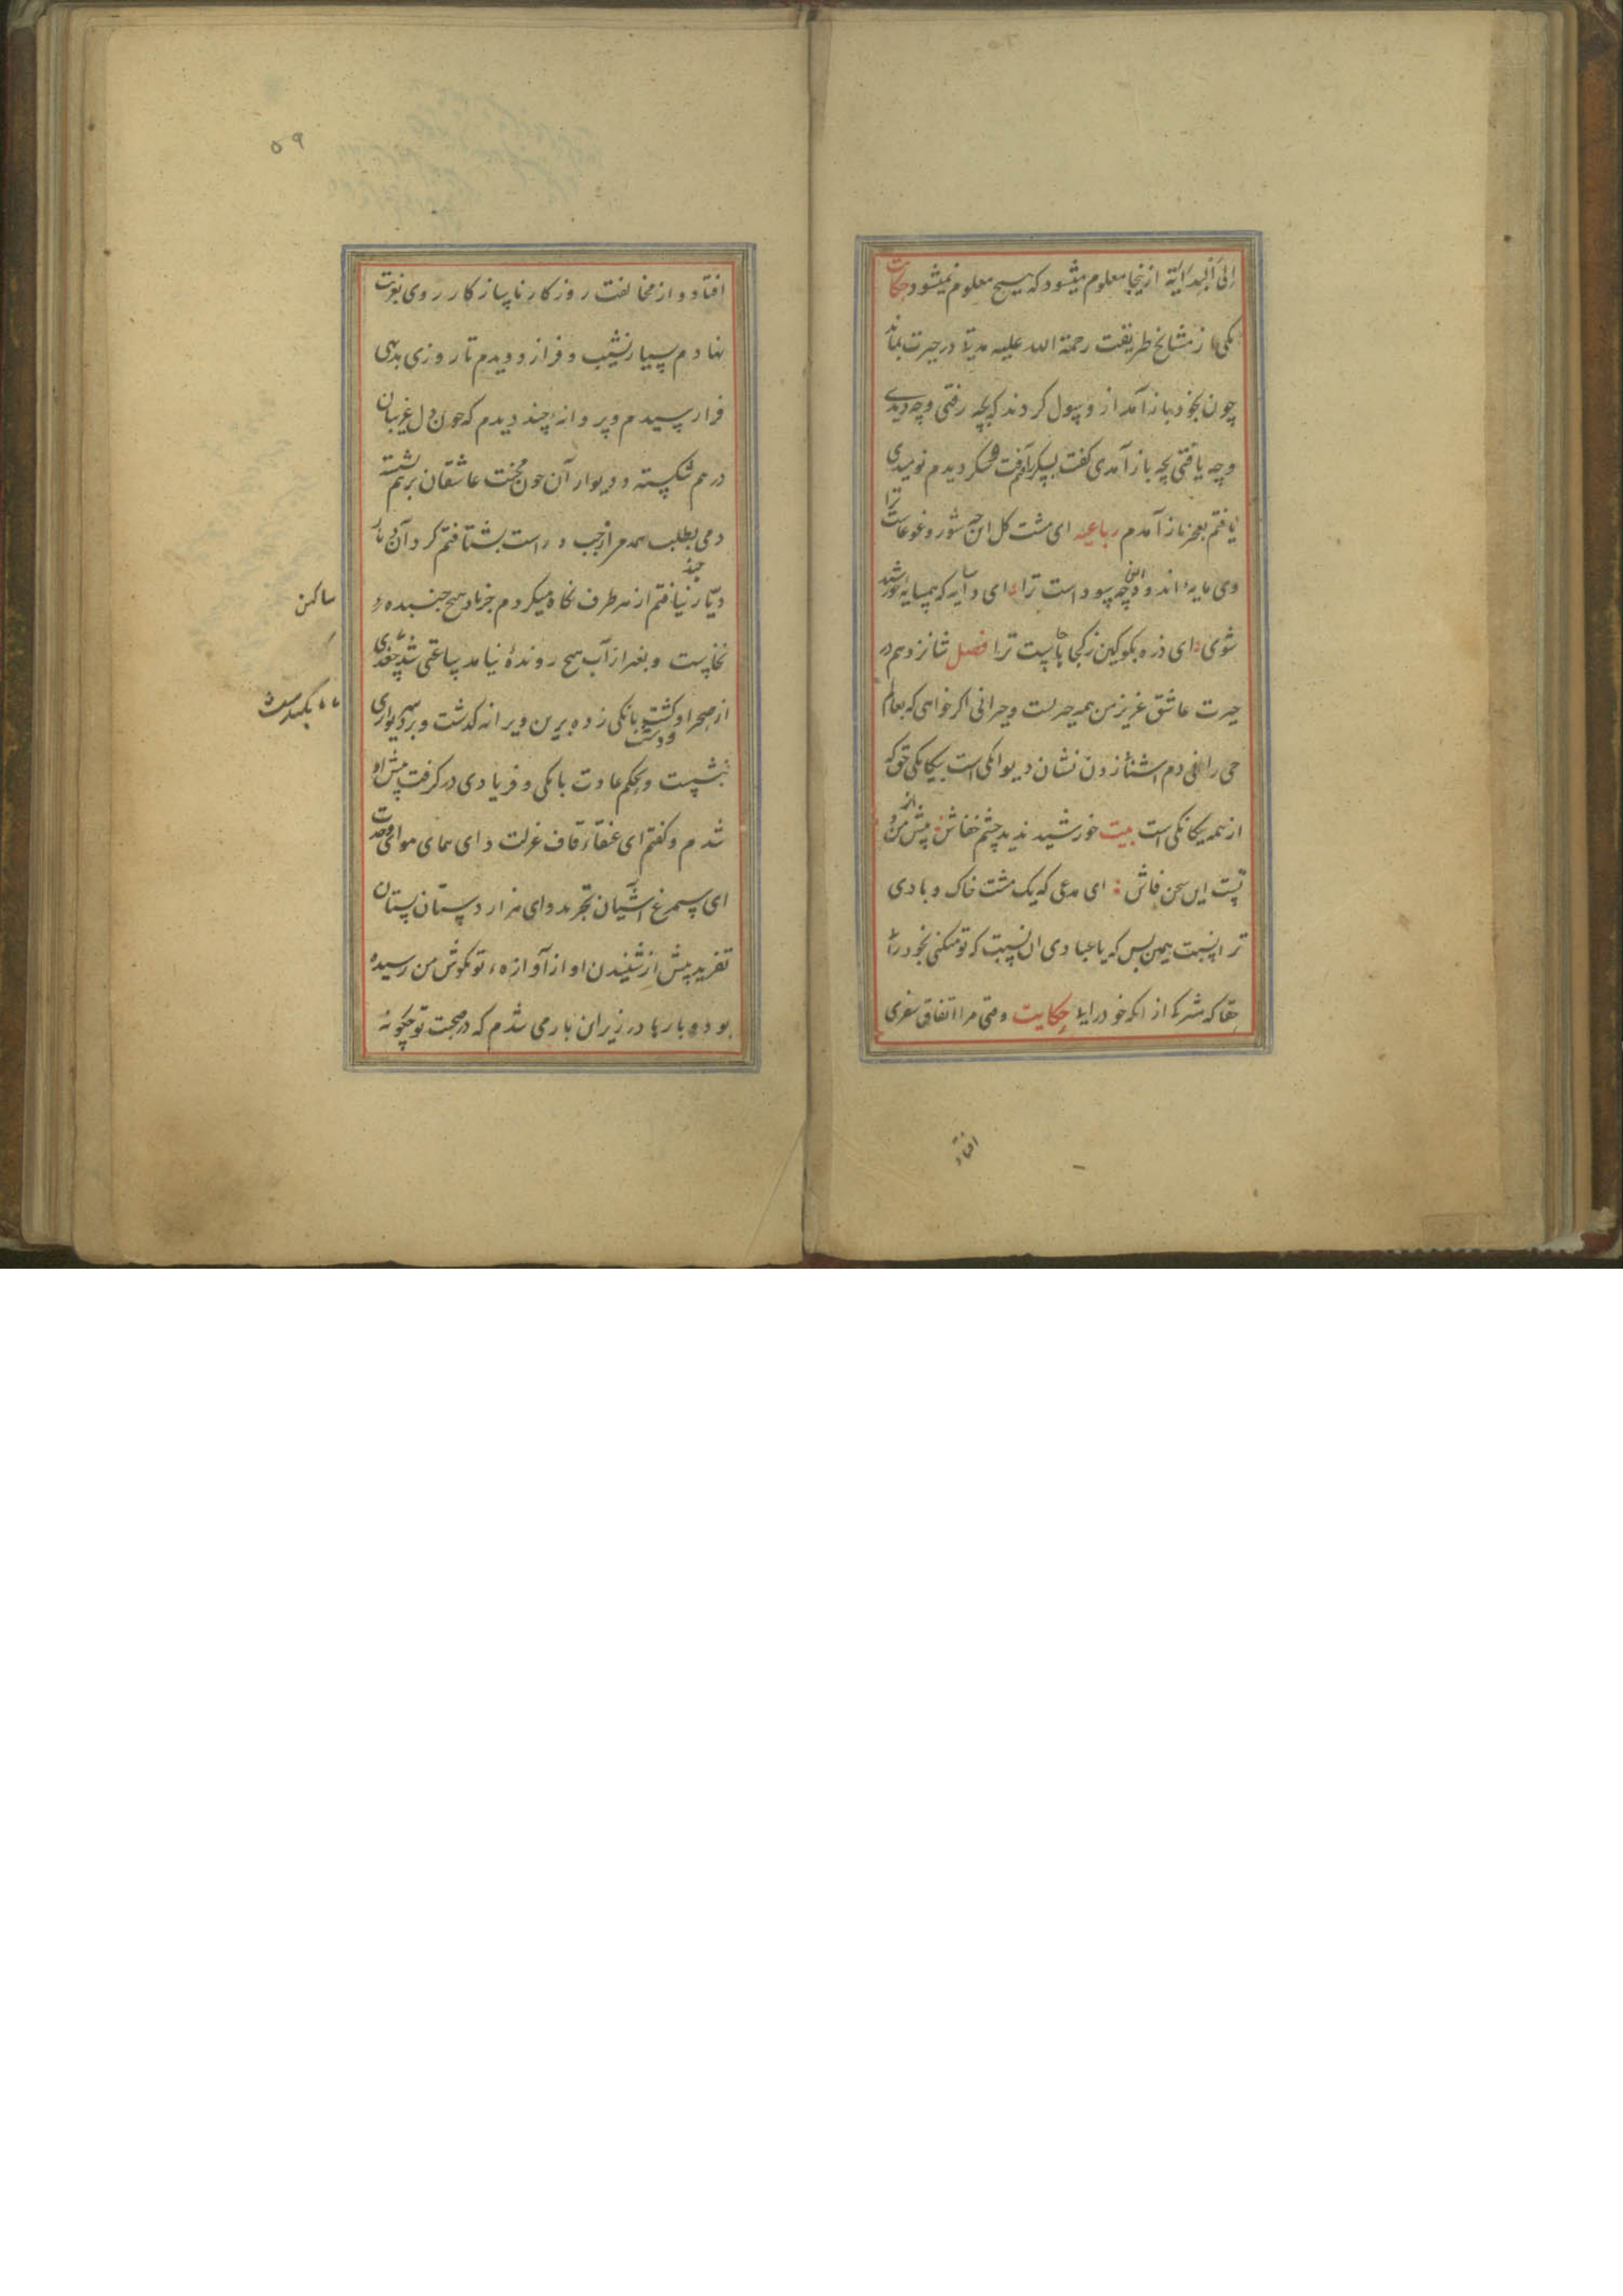 اِلَی اَلْبِدَایَة از ینجا معلوم میشود که هیچ معلوم نمیشود حکایت
یکی از مشایخ طریقت رحمة الله علیه مدتی در حیرت بماند
چون بخود باز آمد ازو سوال کردند که بچه رفتی و چه دیدی
و چه یافتی بچه باز آمدی کفت بسکر رفتم سکر دیدم نومیدی
یافتم بعجز باز آمدم رباعیه ای مشت کل این چه شور و غوغاست ترا
وی مایهٔ اندوه این چه سوداست ترا ای سایه که همسایهٔ خورشید
شوی ای ذره بکو کین ز کجا خاست ترا فصل شانزدهم در
حیرت عاشق عزیز من همه حیرتست و حیرانی اکر خواهی که بعالم
حی رانی دم آشنا زدن نشان دیوانکی است یکانکی حق که
از همه یکانکی است بیت خورشید ندید چشم خفاش پیش از من و
تست این سخن فاش ای مدعی که یک مشت خاک و بادی
ترا نسبت همین بس که یا عبادی ان نسبت که تو میکنی بخود را
حقا که شرکا از انکه خود را یا حکایت وقتی مرا اتفاق سفری
افتاد
۵۹
افتاد و از مخالفت روزکار ناساز کار روی بغربت
نهادم بسیار نشیب و فراز دویدم تا روزی بدهی
فرا رسیدم ویرانهٔ چند دیدم که چون دل غریبان
در هم شکسته و دیوار آن چون محنت عاشقان بر هم نشسته
دمی بطلب همدم از چپ و راست بشتافتم کرد آن دیار
دیّار نیافتم از هر طرف نکاه میکردم جز باد هیچ جنبنده
ساکن
نخاست و بغیر از آب هیچ روندهٔ نیامد ساعتی شد چغدی
از صحرا و کشت و دشت بانکی زد و برین ویرانه کذشت و بر سر دیواری
نبشست و بحکم عادت بانکی و فریادی در کرفت پیش او
شدم و کفتم ای عنقاء قاف عزلت و ای همای هوای وحدت
ای سیمرغ آشیان تجرید و ای هزار دستان بستان
تفرید پیش از شنیدن اواز آوازهٔ تو بکوش من رسیده
بود و بارها در زیر این بار می شدم که در صحبت تو چکونهٔ